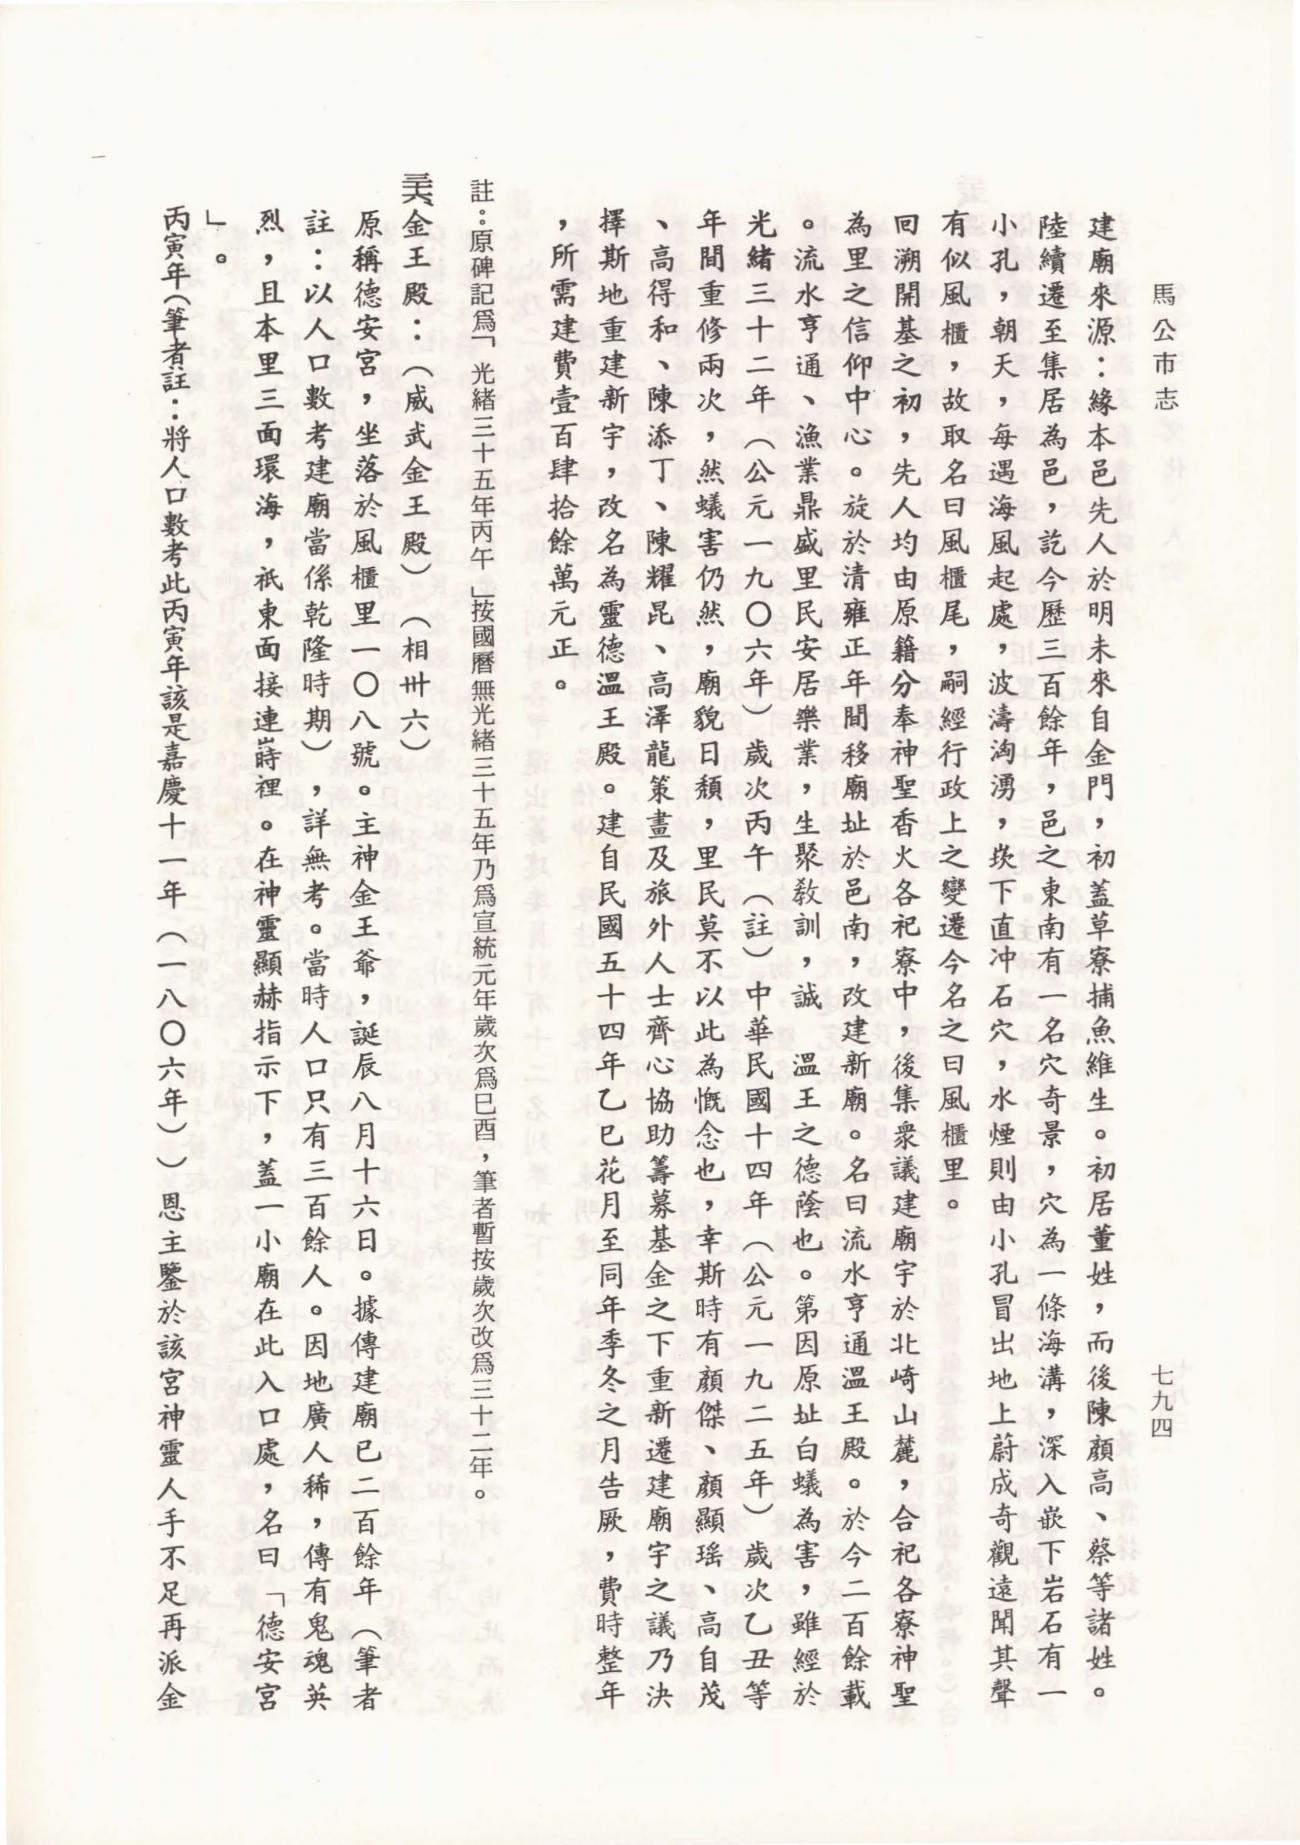 馬公市志
七九四
建廟來源：緣本邑先人於明未來自金門，初蓋草寮捕魚維生。初居董姓，而後陳顏高、蔡等諸姓。
陸續遷至集居為邑，訖今歷三百餘年，邑之東南有一名穴奇景，穴為一條海溝，深入嵌下岩石有一
小孔，朝天，每遇海風起處，波濤洶湧，崁下直冲石穴，水煙則由小孔冒出地上蔚成奇觀遠聞其聲
有似風櫃，故取名曰風櫃尾，嗣經行政上之變遷今名之曰風櫃里。
回溯開基之初，先人均由原籍分奉神聖香火各祀寮中，後集衆議建廟宇於北崎山麓，合祀各寮神聖
為里之信仰中心。旋於清雍正年間移廟址於邑南，改建新廟。名曰流水亨通溫王殿。於今二百餘載
。流水亨通、漁業鼎盛里民安居樂業，生聚教訓，誠　溫王之德蔭也。第因原址白蟻為害，雖經於
光緒三十二年（公元一九〇六年）歲次丙午（註）中華民國十四年（公元一九二五年）歲次乙丑等
年間重修兩次，然蟻害仍然，廟貌日頹，里民莫不以此為慨念也，幸斯時有顏傑、顏顯瑤、高自茂
、高得和、陳添丁、陳耀昆、高澤龍策畫及旅外人士齊心協助籌募基金之下重新遷建廟宇之議乃決
擇斯地重建新宇，改名為靈德溫王殿。建自民國五十四年乙巳花月至同年季冬之月告厥，費時整年
，所需建費壹百肆拾餘萬元正。
註：原碑記爲「光緒三十五年丙午」按國曆無光緒三十五年乃爲宣統元年歲次爲巳酉，筆者暫按歲次改爲三十二年。
金王殿：（威武金王殿）（相卅六）
原稱德安宮，坐落於風櫃里一〇八號。主神金王爺，誕辰八月十六日。據傳建廟已二百餘年（筆者
註：以人口數考建廟當係乾隆時期），詳無考。當時人口只有三百餘人。因地廣人稀，傳有鬼魂英
烈，且本里三面環海，祇東面接連嵵裡。在神靈顯赫指示下，蓋一小廟在此入口處，名曰「德安宮
」。
丙寅年（筆者註：將人口數考此丙寅年該是嘉慶十一年（一八〇六年））恩主鑒於該宮神靈人手不足再派金